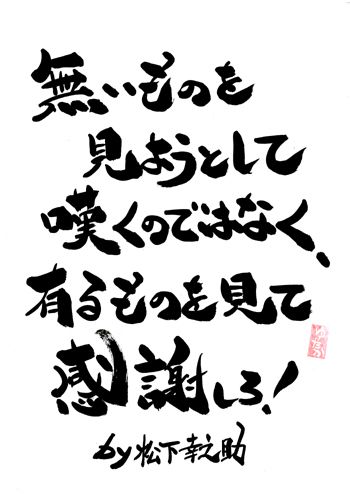 無いものを
見ようとして
嘆くのではなく、
有るものを見て
感謝しろ!
by 松下幸之助